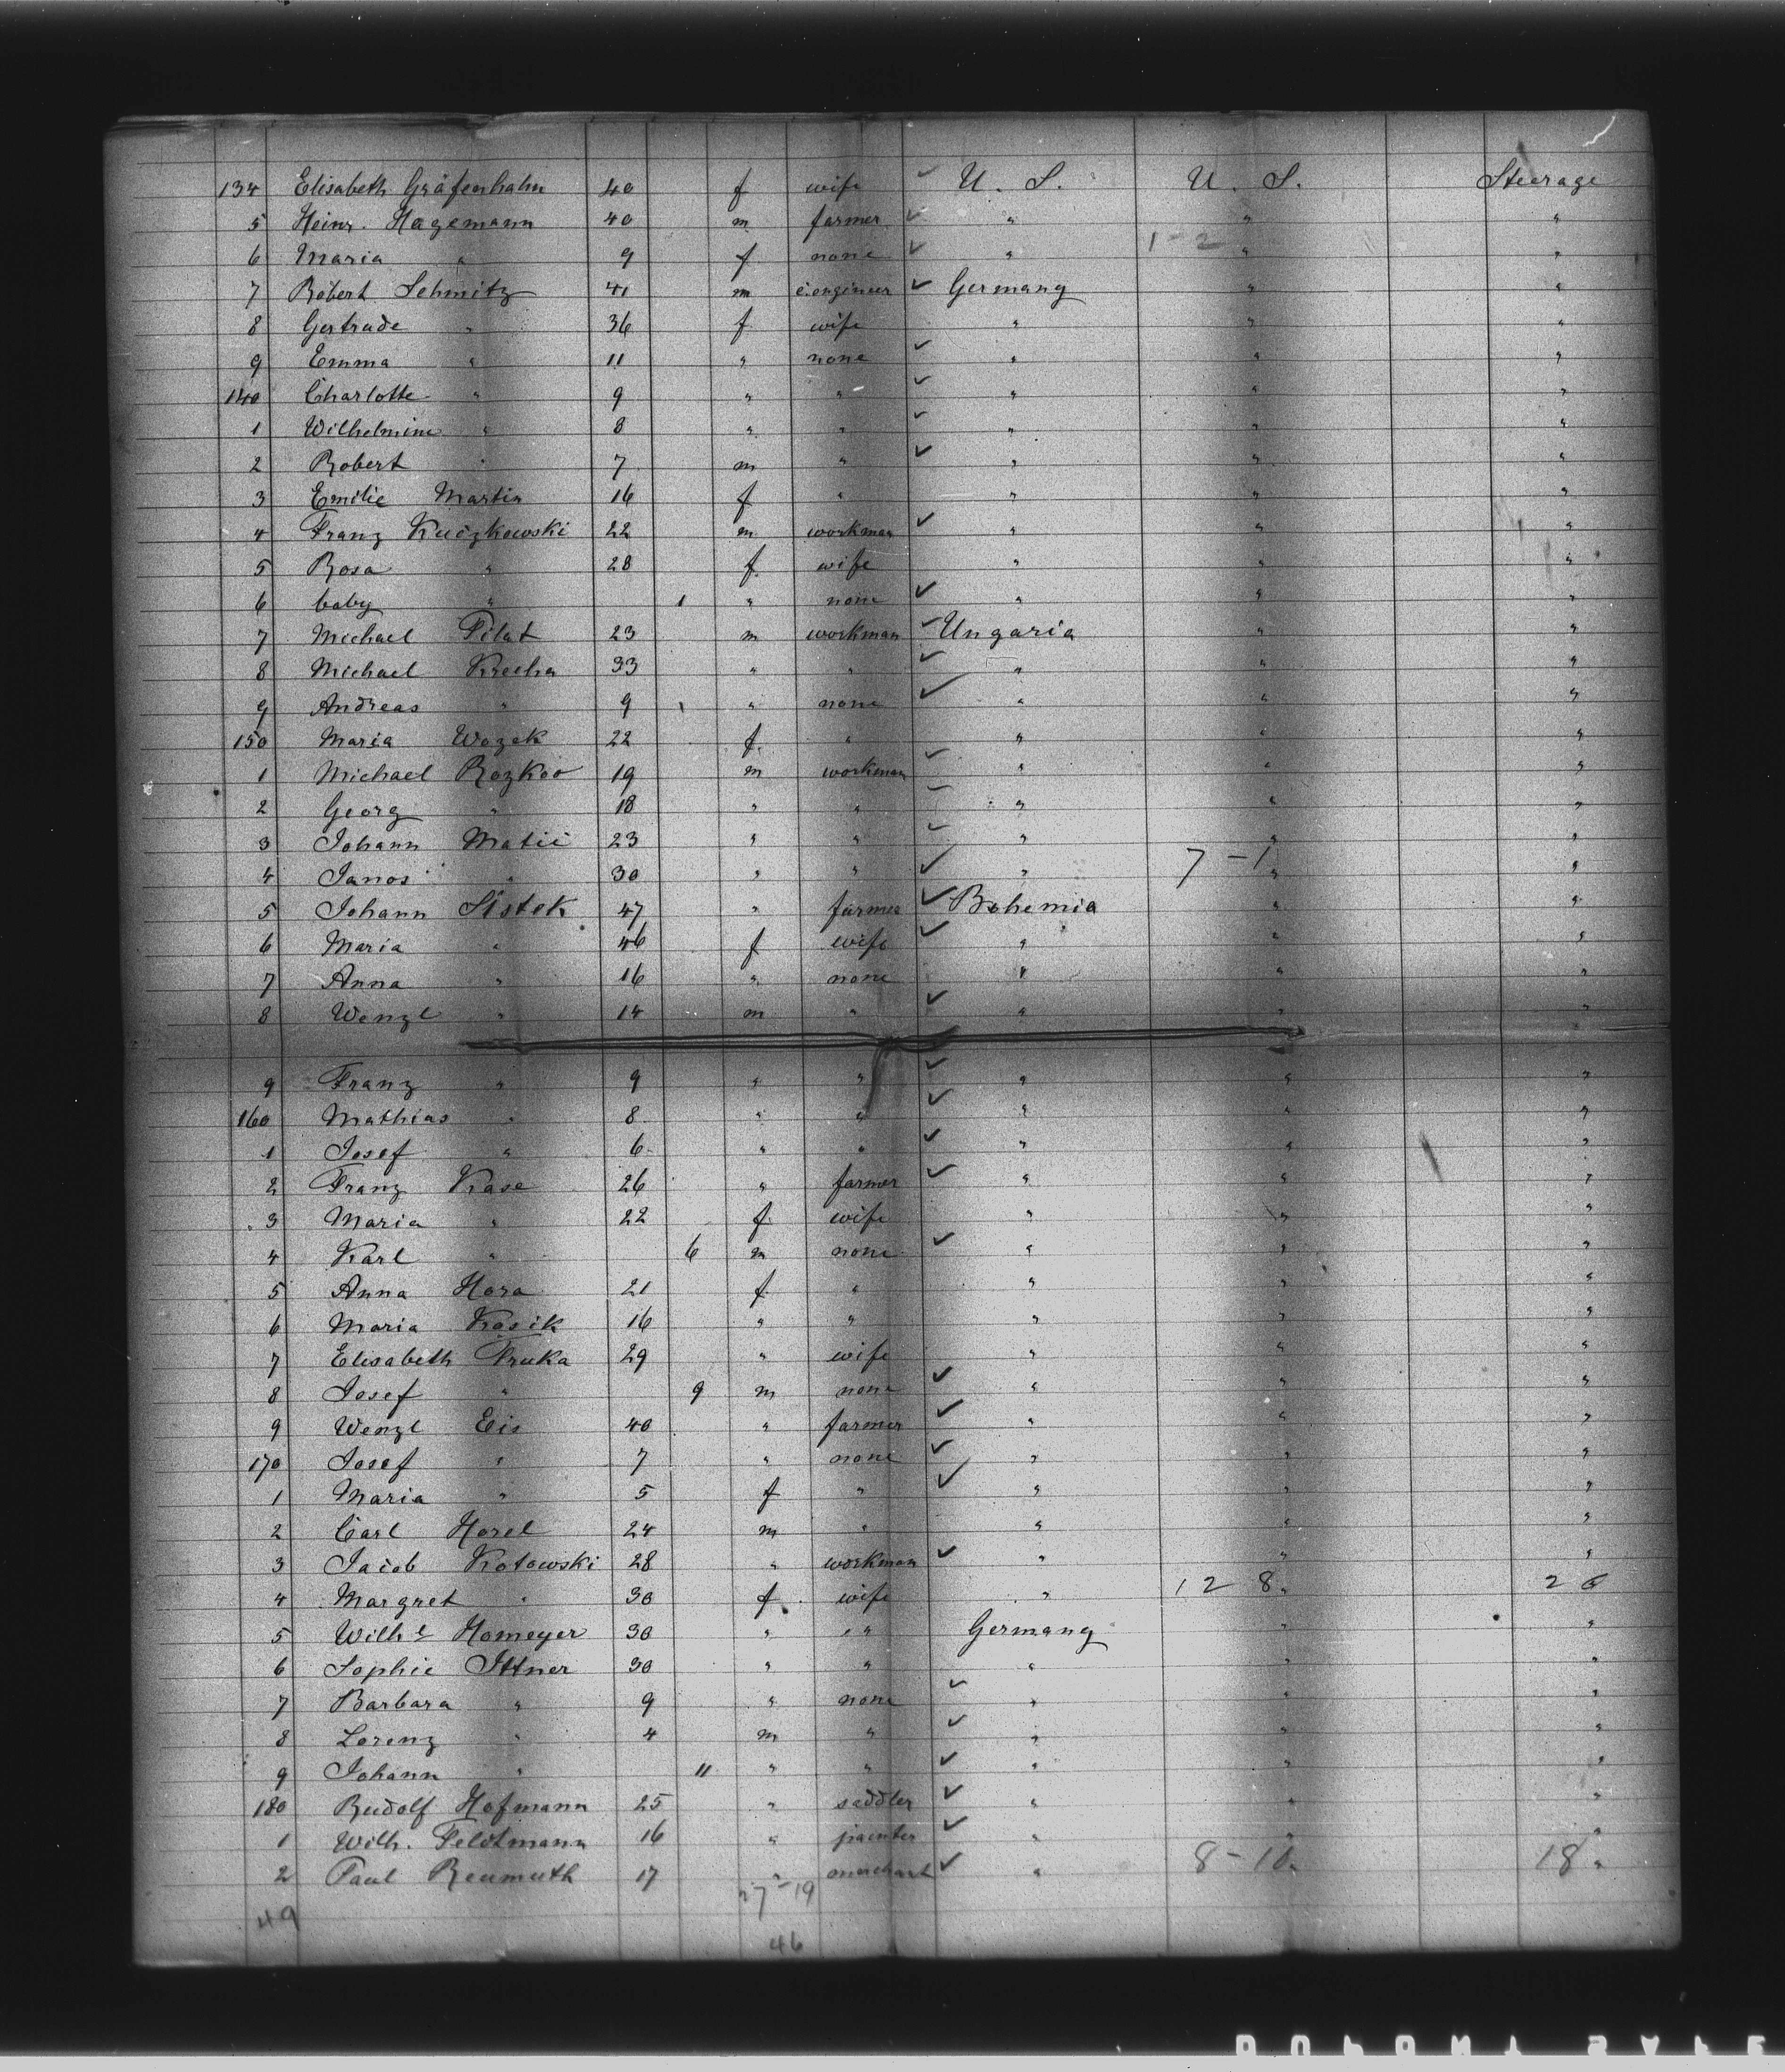 134 Elisabeth Gräfenhahn 40 f wife ✓ U. S. U. S. Steerage
5 Heinr. Hagemann 40 m farmer ✓ " " "
6 Maria " 9 f none ✓ " 1-2 " "
7 Robert Schmitz 41 m c. engineer ✓ Germany " "
8 Gertrude " 36 f wife " " "
9 Emma " 11 " none ✓ " " "
140 Charlotte " 9 " " ✓ " " "
1 Wilhelmine " 8 " " ✓ " " "
2 Robert " 7 m " ✓ " " "
3 Emilie Martin 16 f " " " "
4 Franz Kuczkowski 22 m workman ✓ " " "
5 Rosa " 28 f wife " " "
6 baby " 1 " none ✓ " " "
7 Michael Pilat 23 m workman ✓ Ungaria " "
8 Michael Krecha 33 " " ✓ " " "
9 Andreas " 9 " none ✓ " " "
150 Maria Wozek 22 f " " " "
1 Michael Rozkoo 19 m workman ✓ " " "
2 Georg " 18 " " ✓ " " "
3 Johann Matii 23 " " ✓ " " "
4 Janos " 30 " " ✓ " 7-1 " "
5 Johann Sistek 47 " farmer ✓ Bohemia " "
6 Maria " 46 f wife ✓ " " "
7 Anna " 16 " none " " "
8 Wenzl " 14 m " ✓ " " "
9 Franz " 9 " " ✓ " " "
160 Mathias " 8 " " ✓ " " "
1 Josef " 6 " " ✓ " " "
2 Franz Kase 26 " farmer ✓ " " "
3 Maria " 22 f wife " " "
4 Karl " 6 m none ✓ " " "
5 Anna Hora 21 f " " " "
6 Maria Kasik 16 " " " " "
7 Elisabeth Pruka 29 " wife " " "
8 Josef " 9 m none ✓ " " "
9 Wenzl Eis 40 " farmer ✓ " " "
170 Josef " 7 " none ✓ " " "
1 Maria " 5 f " ✓ " " "
2 Carl Horel 24 m " " " "
3 Jacob Kotowski 28 " workman ✓ " " "
4 Margret " 30 f wife " 12 8 " 20
5 Wilhe Homeyer 30 " " " Germany " "
6 Sophie Ittner 30 " " " " "
7 Barbara " 9 " none ✓ " " "
8 Lorenz " 4 m " ✓ " " "
9 Johann " 11 " " ✓ " " "
180 Rudolf Hofmann 25 " saddler ✓ " " "
1 Wilh. Feldtmann 16 " painter ✓ " " "
2 Paul Reumuth 17 " merchant ✓ " 8-10 " 18 "
27-19
49
46